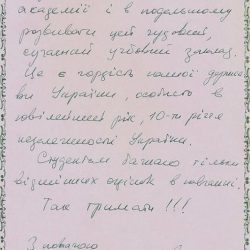 академії і в подальшому
розвивати цей чудовий,
сучасний учбовий заклад.
Це є гордість нашої держа-
ви України, особливо в
ювілейний рік, 10-ти річчя
незалежності України.
Студентам бажаю тільки
відмінних оцінок в навчанні.
Так тримати!!!
З повагою